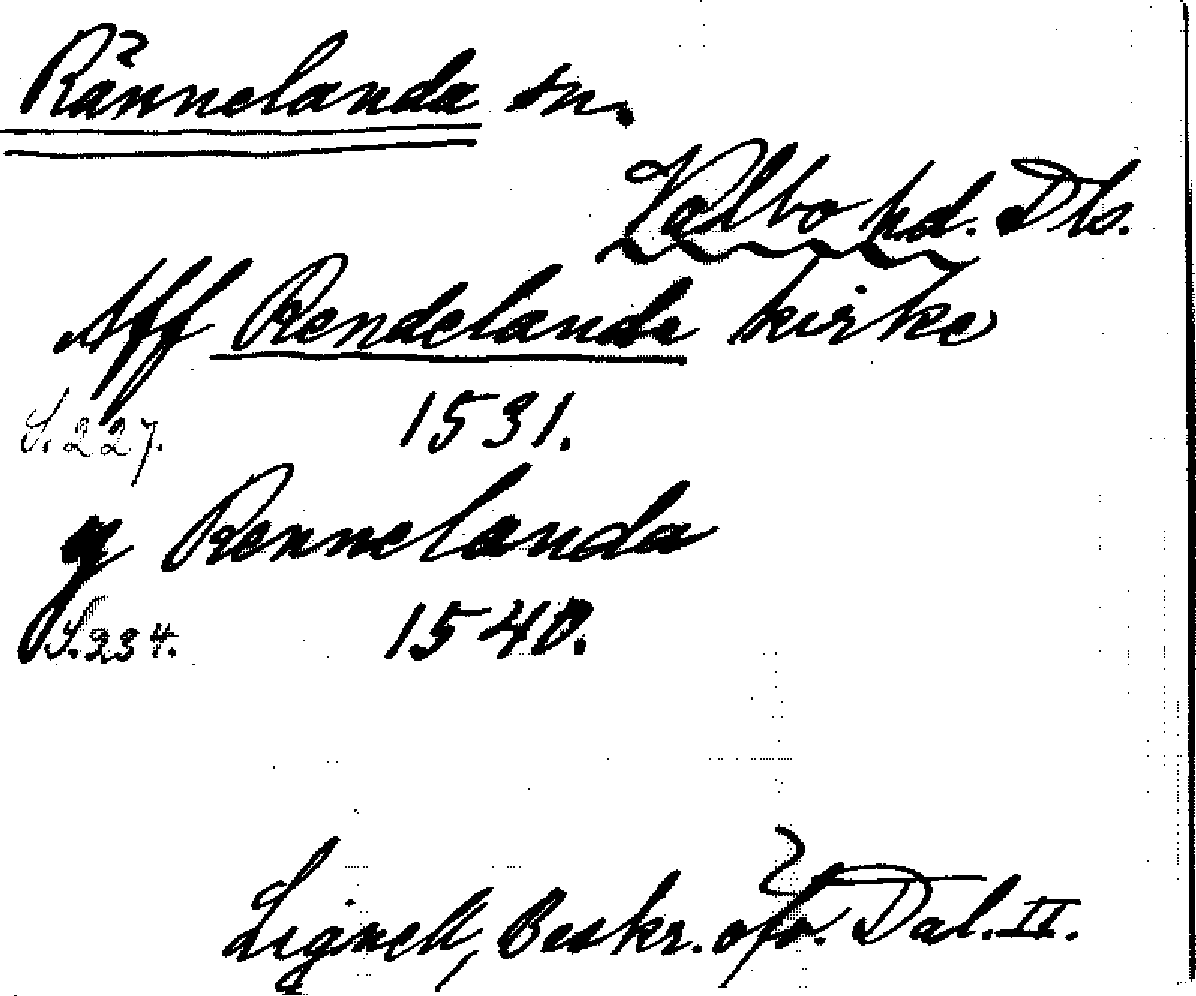 Rännelanda sn.
Valbo hd. Dls.
Aff Rendelanda kirke
S. 227. 1531.
y Rennelanda
S. 234. 1540.
Lignell, Beskr. öfv. Dal. II.